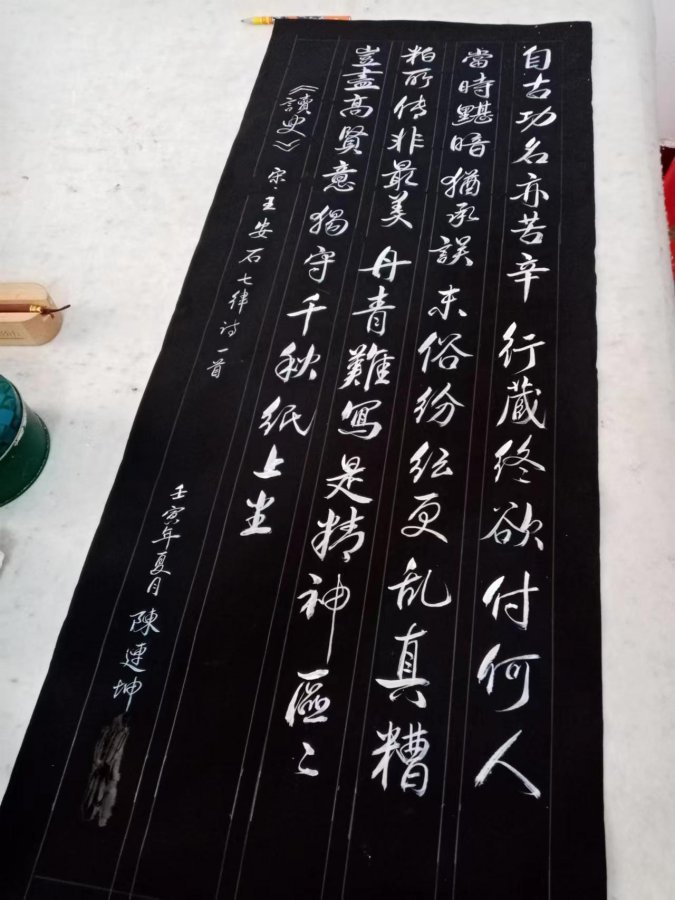 自古功名亦苦辛行藏終欲付何人
當時黮暗猶承誤末俗紛紜更乱真糟
粕所傳非最美丹青難寫是精神區々
豈盡高賢意獨守千秋紙上尘
《讀史》宋王安石七律詩一首
壬寅年夏月陳連坤